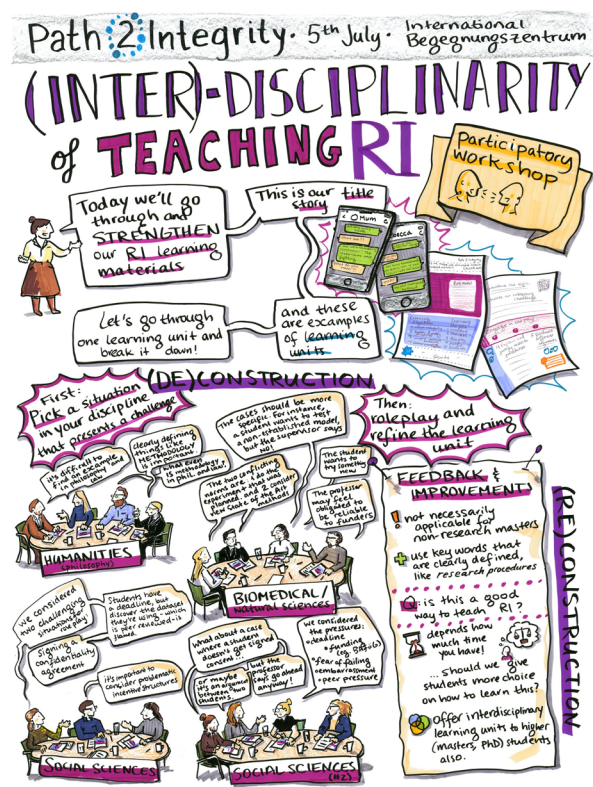 Path 2 Integrity · 5th July · International
Begegnungszentrum
(INTER)-DISCIPLINARITY
of TEACHING RI
participatory
workshop
Today we'll go
through and
STRENGTHEN
our RI learning
materials
This is our title
story
Mum
and these
are examples
of learning
units
Let's go through
one learning unit and
break it down!
(DE)CONSTRUCTION
First:
Pick a situation
in your discipline
that presents a challenge
it's difficult to
find an example
in philosophy and
lab
clearly defining
things like
METHODOLOGY
is important
what even
is methodology
in phil. and law?
HUMANITIES
(philosophy)
The cases should be more
specific. For instance,
a student wants to test
a non established model,
but the supervisor says
NO!
The two conflicting
norms are: 1. the
experiment that was
planned, and 2 consider
new State of the Art
methods
The student
wants to
try something
new
The professor
may feel
obligated to
be reliable
to funders
BIOMEDICAL/
Natural sciences
Then:
roleplay and
refine the learning
unit
FEEDBACK &
IMPROVEMENT
! not necessarily
applicable for
non-research masters
+ use key words that
are clearly defined,
like research procedures
Q: is this a good
way to teach RI?
depends how
much time
you have!
... should we give
students more choice
on how to learn this?
Offer interdisciplinary
learning units to higher
(masters, PhD) students
also.
(RE)CONSTRUCTION
we considered
two challenging
situations for
role play!
Students have
a deadline, but
discover the dataset
they're using - which
is peer reviewed - is
flawed
Signing a
confidentiality
agreement
it's important to
consider problematic
incentive structures
SOCIAL SCIENCES
What about a case
where a student
doesn't get signed
consent...
or maybe
it's an argument
between two
students.
but the
professor
says go ahead
anyway!
we considered
the pressures:
• deadline
• funding
• fear of failing
• embarrassment
• peer pressure
SOCIAL SCIENCES
(#2)